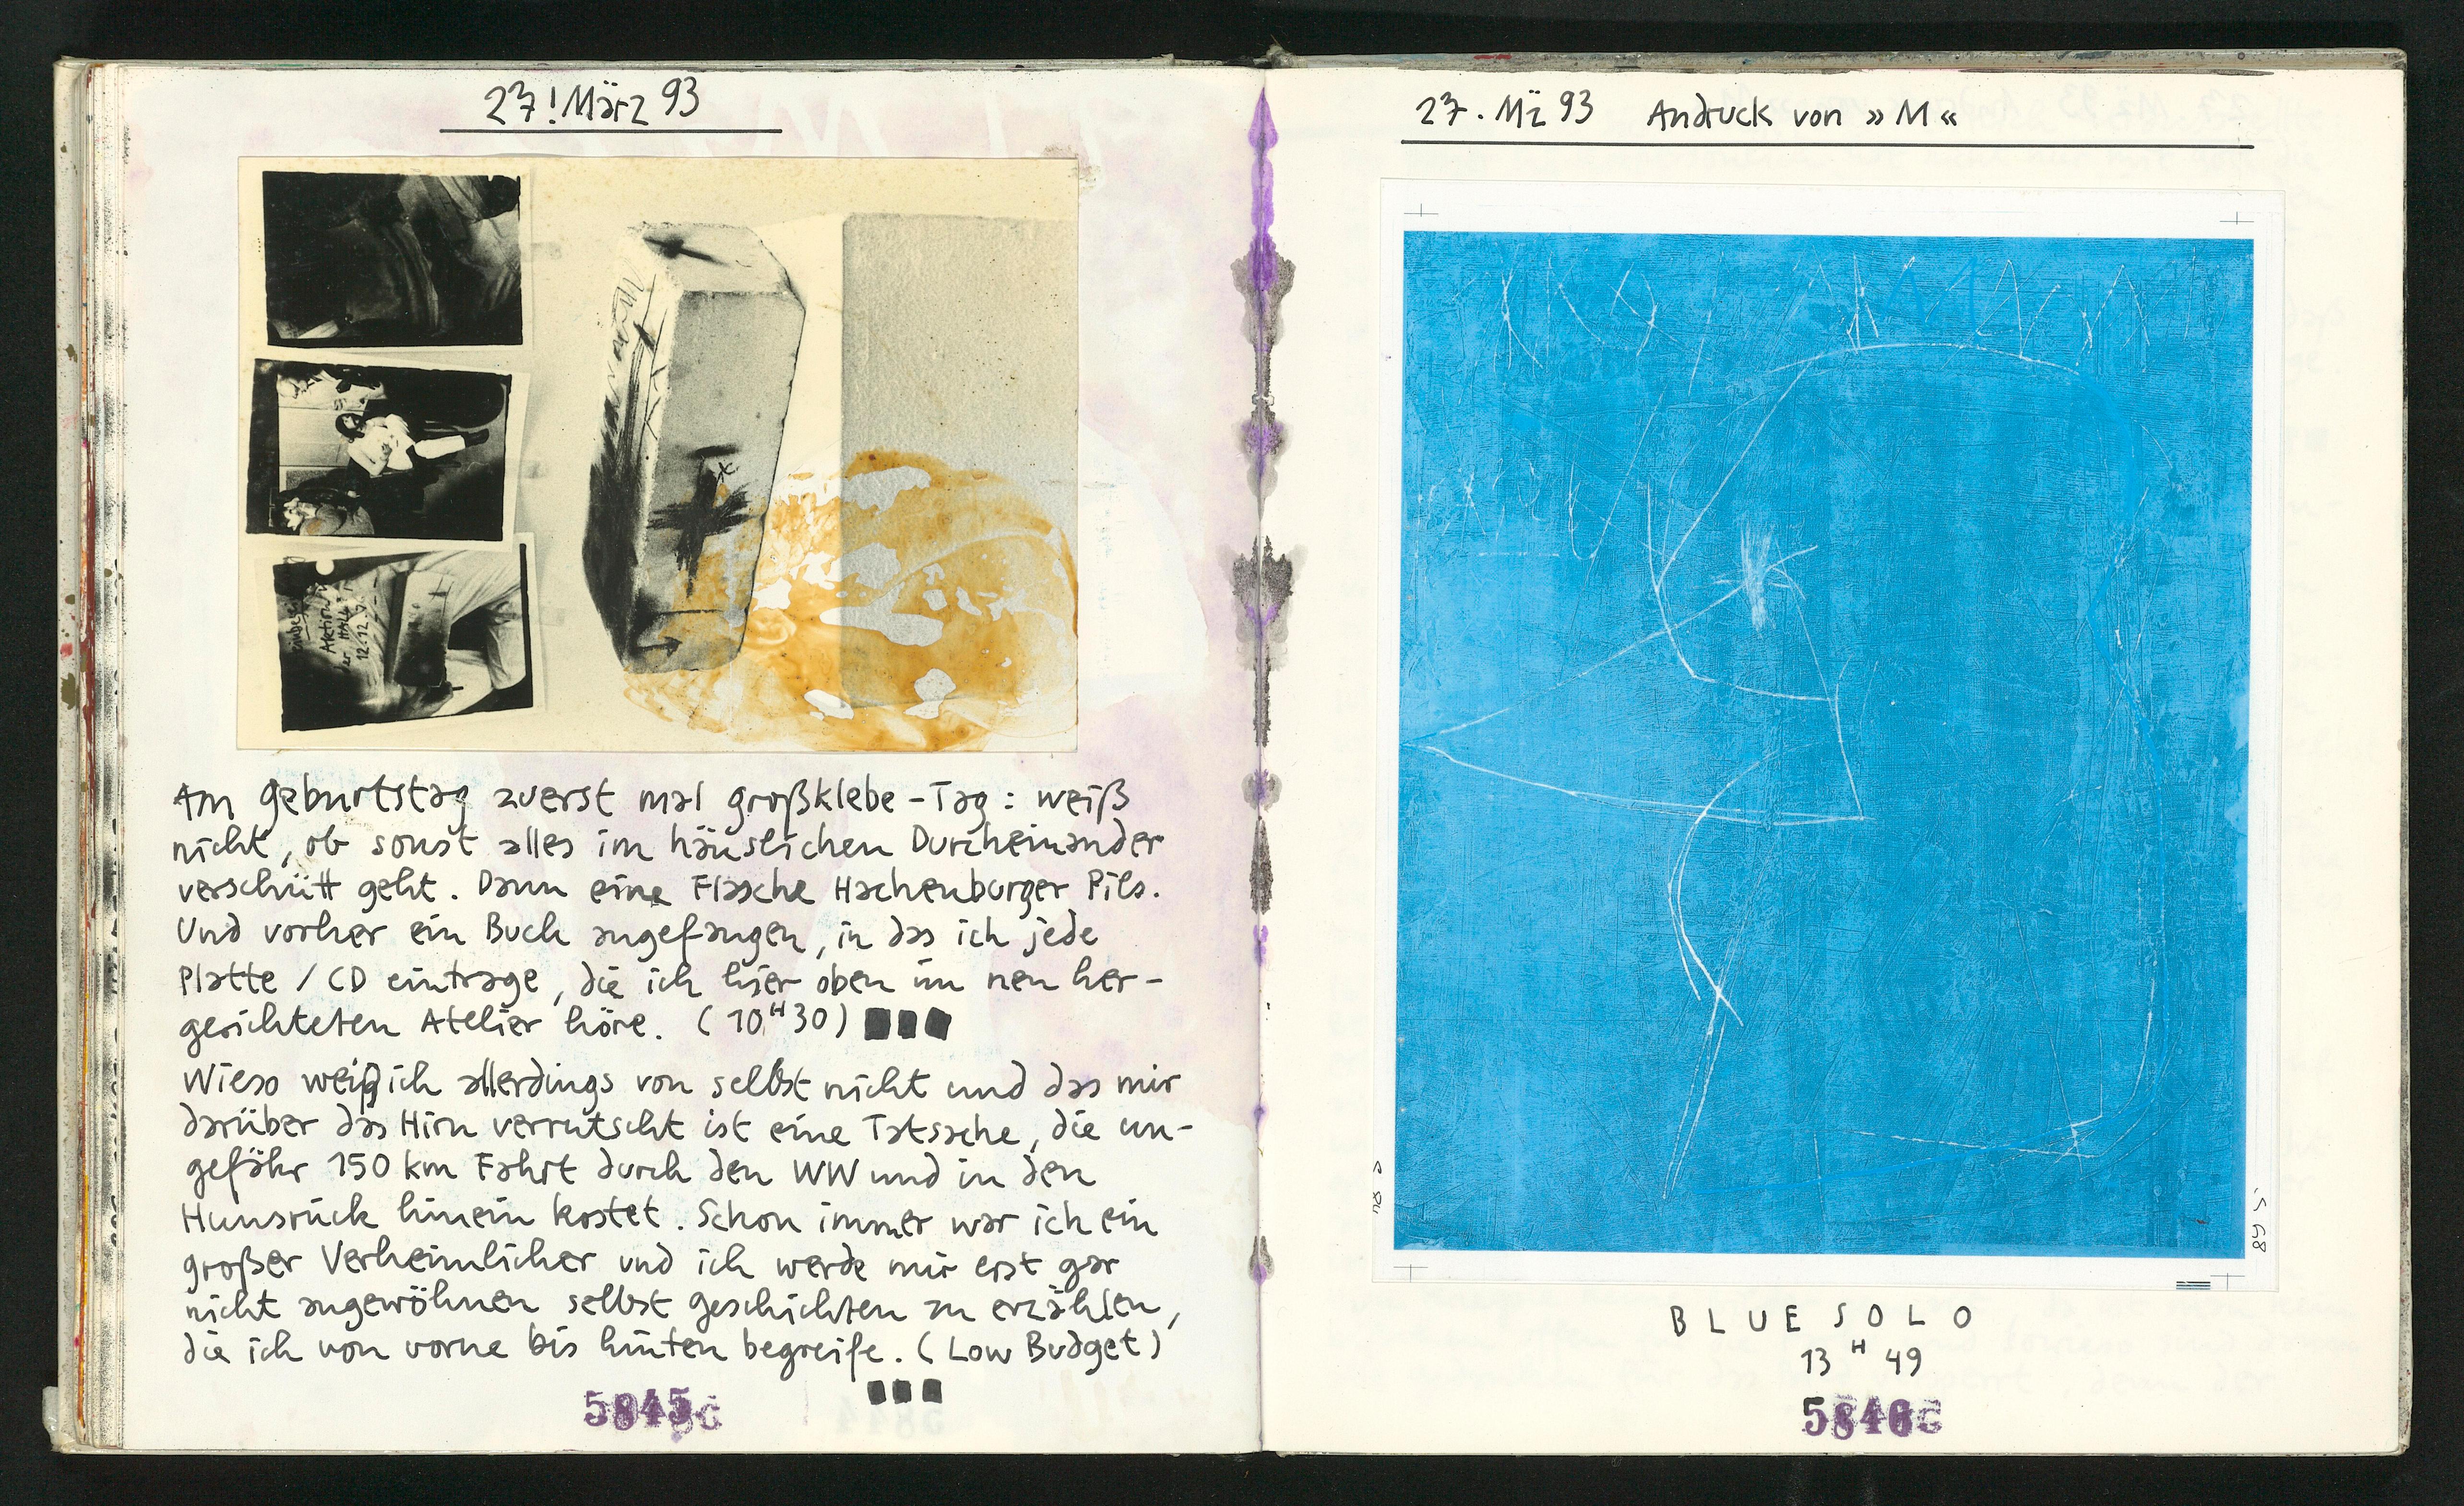 27! März 93
Aktion
12.12.7
Am Geburtstag zuerst mal großklebe-Tag: weiß
nicht, ob sonst alles im häuslichen Durcheinander
verschütt geht. Dann eine Flasche Hachenburger Pils.
Und vorher ein Buch angefangen, in das ich jede
Platte / CD eintrage, die ich hier oben im neu her-
gerichteten Atelier höre. (10H30)
Wieso weiß ich allerdings von selbst nicht und das mir
darüber das Hirn verrutscht ist eine Tatsache, die un-
gefähr 150 km Fahrt durch den WW und in den
Hunsrück hinein kostet. Schon immer war ich ein
großer Verheimlicher und ich werde mir erst gar
nicht angewöhnen selbst Geschichten zu erzählen,
die ich von vorne bis hinten begreife. (Low Budget)
5845
27. Mz 93 Andruck von »M«
BLUE SOLO
13 H 49
5846